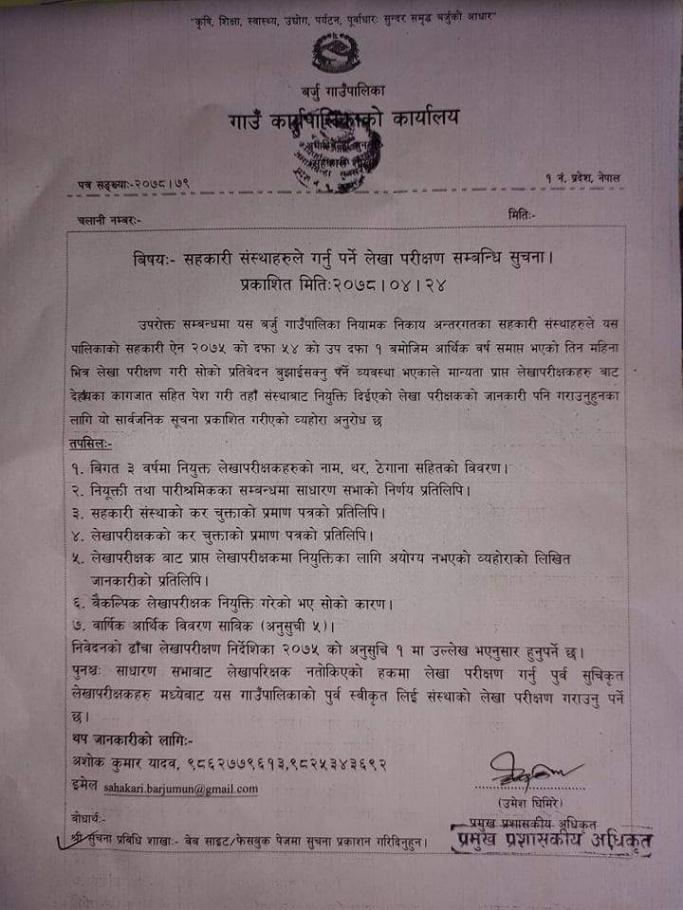 "कृषि, शिक्षा, स्वास्थ्य, उद्योग, पर्यटन, पूर्वाधारः सुन्दर समृद्ध बर्जुको आधार"
बर्जु गाउँपालिका
गाउँ कार्यपालिकाको कार्यालय
पत्र सङ्ख्याः-२०७८।७९
१ नं. प्रदेश, नेपाल
चलानी नम्बरः-
मितिः-
बिषयः- सहकारी संस्थाहरुले गर्नु पर्ने लेखा परीक्षण सम्बन्धि सुचना।
प्रकाशित मितिः२०७८।०४।२४
उपरोक्त सम्बन्धमा यस बर्जु गाउँपालिका नियामक निकाय अन्तरगतका सहकारी संस्थाहरुले यस
पालिकाको सहकारी ऐन २०७५ को दफा ५४ को उप दफा १ बमोजिम आर्थिक वर्ष समाप्त भएको तिन महिना
भित्र लेखा परीक्षण गरी सोको प्रतिवेदन बुझाईसक्नु पर्ने व्यवस्था भएकाले मान्यता प्राप्त लेखापरीक्षकहरु बाट
कागजात सहित पेश गरी तहाँ संस्थाबाट नियुक्ति दिईएको लेखा परीक्षकको जानकारी पनि गराउनुहुनका
लागि यो सार्वजनिक सूचना प्रकाशित गरीएको व्यहोरा अनुरोध छ
तपसिलः-
१. बिगत ३ वर्षमा नियुक्त लेखापरीक्षकहरुको नाम, थर, ठेगाना सहितको विवरण।
२. नियूक्ती तथा पारीश्रमिकका सम्बन्धमा साधारण सभाको निर्णय प्रतिलिपि।
३. सहकारी संस्थाको कर चुक्ताको प्रमाण पत्रको प्रतिलिपि।
४. लेखापरीक्षकको कर चुक्ताको प्रमाण पत्रको प्रतिलिपि।
५. लेखापरीक्षक बाट प्राप्त लेखापरीक्षकमा नियुक्तिका लागि अयोग्य नभएको व्यहोराको लिखित
जानकारीको प्रतिलिपि।
६. वैकल्पिक लेखापरीक्षक नियुक्ति गरेको भए सोको कारण।
७. वार्षिक आर्थिक विवरण साविक (अनुसुची ५)।
निवेदनको ढाँचा लेखापरीक्षण निर्देशिका २०७५ को अनुसुचि १ मा उल्लेख भएनुसार हुनुपर्ने छ।
पुनश्चः साधारण सभाबाट लेखापरिक्षक नतोकिएको हकमा लेखा परीक्षण गर्नु पुर्व सुचिकृत
लेखापरीक्षकहरु मध्येबाट यस गाउँपालिकाको पुर्व स्वीकृत लिई संस्थाको लेखा परीक्षण गराउनु पर्ने
छ।
थप जानकारीको लागिः-
अशोक कुमार यादव, ९८६२७७९६१३,९८२५३४३६९२
इमेल sahakari.barjumun@gmail.com
(उमेश घिमिरे)
प्रमुख प्रशासकीय अधिकृत
प्रमुख प्रशासकीय अधिकृत
बोधार्थः-
श्री सुचना प्रबिधि शाखाः- वेब साइट/फेसबुक पेजमा सुचना प्रकाशन गरिदिनुहुन।